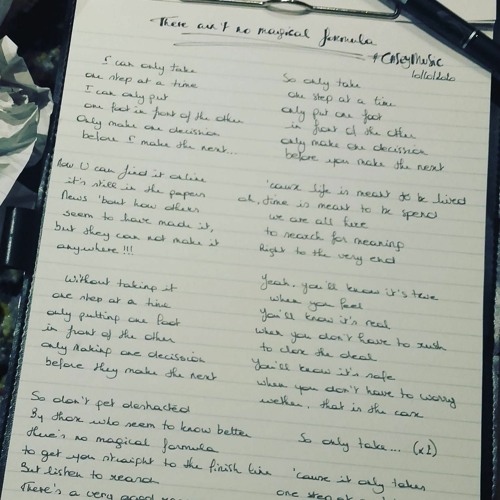 There ain't no magical formula
#CaseyMusic
10/10/2020
I can only take
one step at a time
I can only put
one foot in front of the other
Only make one decission
before I make the next...
Now U can find it online
it's still in the papers
News 'bout how others
seem to have made it,
but they can not make it
anywhere!!!
Without taking it
one step at a time
only putting one foot
in front of the other
only making one decission
before they make the next
So don't get destracted
By those who seem to know better
there's no magical formula
to get you straight to the finish line
But listen to reason
There's a very good
So only take
one step at a time
only put one foot
in front of the other
only make one decission
before you make the next
'cause life is meant to be lived
oh, time is meant to be spend
we are all here
to search for meaning
Right to the very end
Yeah, you'll know it's true
when you feel
you'll know it's real
when you don't have to rush
to close the deal
You'll know it's safe
when you don't have to worry
wether, that is the case
So only take... (x1)
'cause it only takes
one step at a